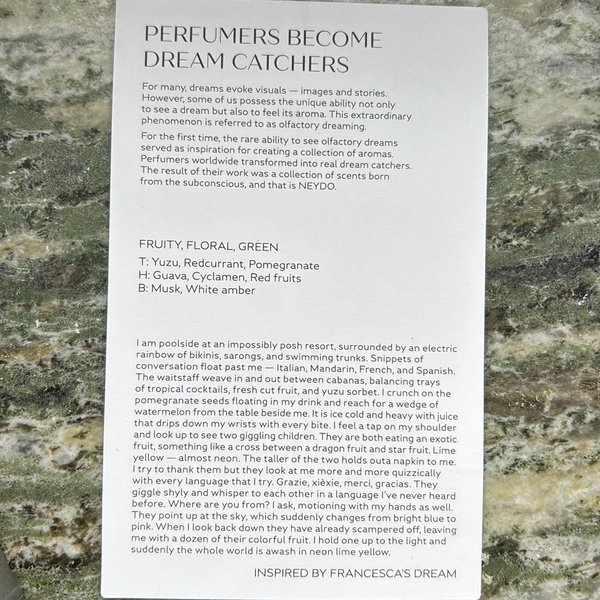 PERFUMERS BECOME
DREAM CATCHERS
For many, dreams evoke visuals — images and stories.
However, some of us possess the unique ability not only
to see a dream but also to feel its aroma. This extraordinary
phenomenon is referred to as olfactory dreaming.
For the first time, the rare ability to see olfactory dreams
served as inspiration for creating a collection of aromas.
Perfumers worldwide transformed into real dream catchers.
The result of their work was a collection of scents born
from the subconscious, and that is NEYDO.
FRUITY, FLORAL, GREEN
T: Yuzu, Redcurrant, Pomegranate
H: Guava, Cyclamen, Red fruits
B: Musk, White amber
I am poolside at an impossibly posh resort, surrounded by an electric
rainbow of bikinis, sarongs, and swimming trunks. Snippets of
conversation float past me — Italian, Mandarin, French, and Spanish.
The waitstaff weave in and out between cabanas, balancing trays
of tropical cocktails, fresh cut fruit, and yuzu sorbet. I crunch on the
pomegranate seeds floating in my drink and reach for a wedge of
watermelon from the table beside me. It is ice cold and heavy with juice
that drips down my wrists with every bite. I feel a tap on my shoulder
and look up to see two giggling children. They are both eating an exotic
fruit, something like a cross between a dragon fruit and star fruit. Lime
yellow — almost neon. The taller of the two holds outa napkin to me.
I try to thank them but they look at me more and more quizzically
with every language that I try. Grazie, xièxie, merci, gracias. They
giggle shyly and whisper to each other in a language I've never heard
before. Where are you from? I ask, motioning with my hands as well.
They point up at the sky, which suddenly changes from bright blue to
pink. When I look back down they have already scampered off, leaving
me with a dozen of their colorful fruit. I hold one up to the light and
suddenly the whole world is awash in neon lime yellow.
INSPIRED BY FRANCESCA'S DREAM